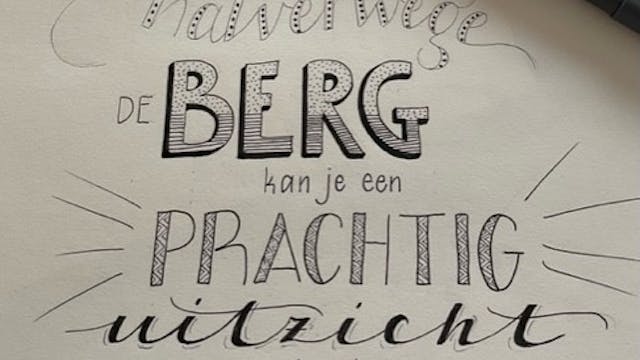 halverwege
DE BERG
kan je een
PRACHTIG
uitzicht